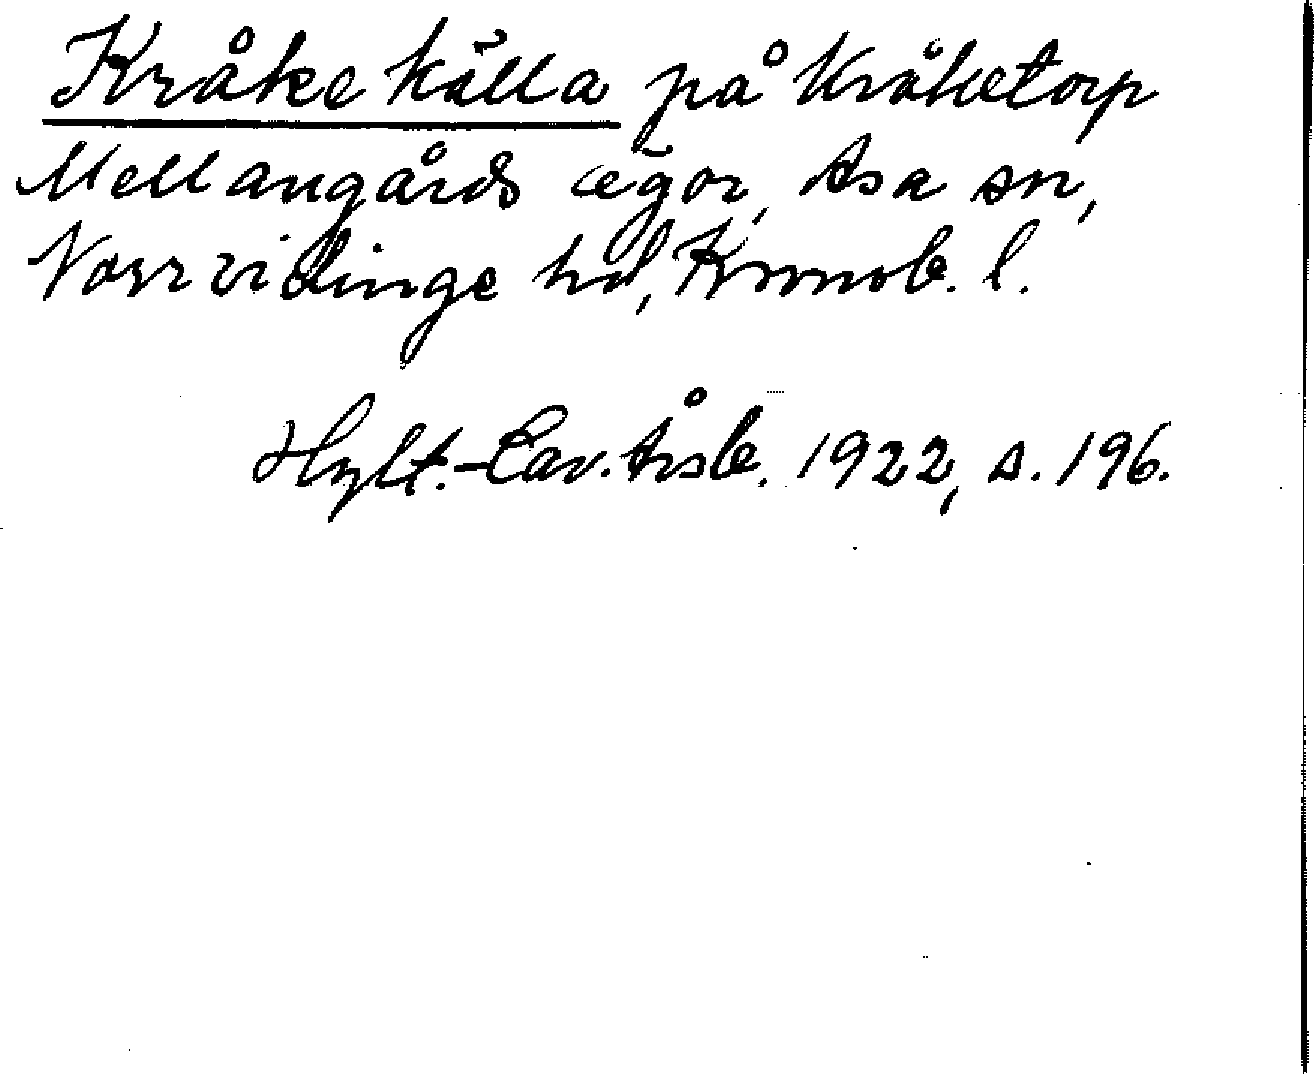 Kråkekälla på Kråketorp
Mellangårds ægor, Asa sn,
Norrvidinge hd, Kronob. l.
Hylt.-Cav. Årsb. 1922, s. 196.